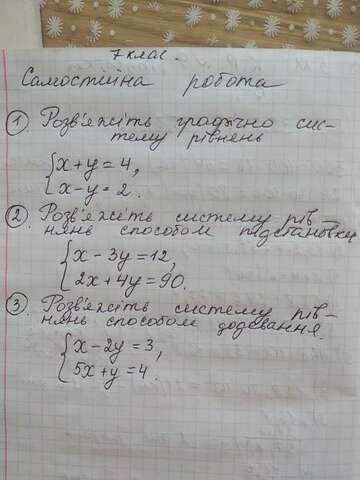 7 клас.
Самостійна робота
1 Розв'яжіть графічно сис-
тему рівнень
{x+y=4,
x-y=2.
2. Розв'яжіть систему рів-
нянь способом підстановки
{x-3y=12,
2x+4y=90.
3 Розв'яжіть систему рів-
нянь способом додавання.
{x-2y=3,
5x+y=4.